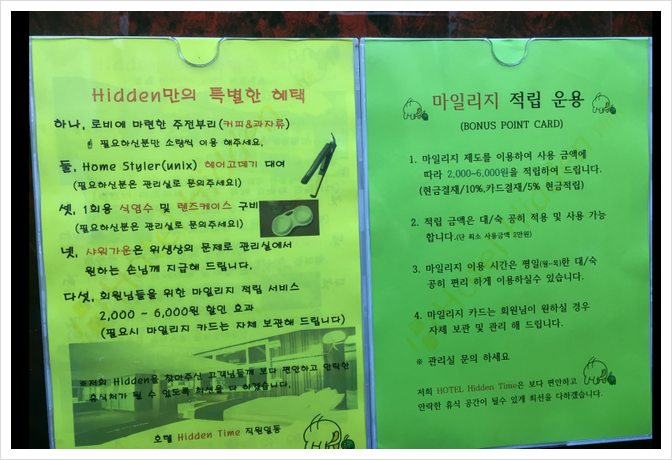 Hidden만의 특별한 혜택
하나, 로비에 마련한 주전부리(커피&과자류)
필요하신분만 소량씩 이용 해주세요.
둘, Home Styler(unix) 헤어고데기 대여
(필요하신분은 관리실로 문의주세요!)
셋, 1회용 식염수 및 렌즈케이스 구비
(필요하신분은 관리실로 문의주세요!)
넷, 샤워가운은 위생상의 문제로 관리실에서
원하는 손님께 지급해 드립니다.
다섯, 회원님들을 위한 마일리지 적립 서비스
2,000 ~ 6,000원 할인 효과
(필요시 마일리지 카드는 자체 보관해 드립니다)
※저희 Hidden을 찾아주신 고객님들께 보다 편안하고 안락한
휴식처가 될 수 있도록 최선을 다 하겠습니다.
호텔 Hidden Time 직원일동
마일리지 적립 운용
(BONUS POINT CARD)
1. 마일리지 제도를 이용하여 사용 금액에
따라 2,000~6,000원을 적립하여 드립니다.
(현금결재/10%,카드결재/5% 현금적립)
2. 적립 금액은 대/숙 공히 적용 및 사용 가능
합니다.(단 최소 사용금액 2만원)
3. 마일리지 이용 시간은 평일(월~목)한 대/숙
공히 편리 하게 이용하실수 있습니다.
4. 마일리지 카드는 회원님이 원하실 경우
자체 보관 및 관리 해 드립니다.
※ 관리실 문의 하세요
저희 HOTEL Hidden Time은 보다 편안하고
안락한 휴식 공간이 될수 있게 최선을 다하겠습니다.